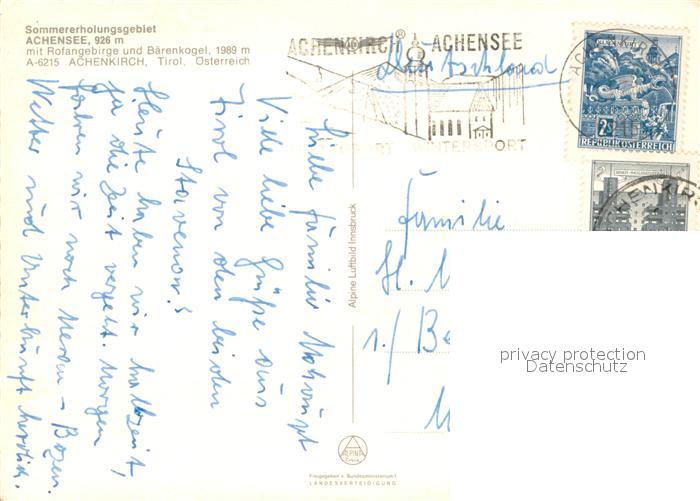 Sommererholungsgebiet
ACHENSEE, 926 m
mit Rofangebirge und Bärenkogel, 1989 m
A-6215 ACHENKIRCH, Tirol, Österreich
ACHENKIRCH ACHENSEE
WINTERSPORT
Deutschland
REPUBLIK ÖSTERREICH
Liebe Familie
Viele liebe Grüße aus
Tirol von den beiden
Stavenow!
Heute haben wir Halbzeit,
ja die Zeit vergeht. Morgen
fahren wir noch Meran - Bozen.
Wetter und Unterkunft herrlich.
Alpine Luftbild Innsbruck
Familie
H.
ALPINA
Freigegeben v. Bundesministerium f.
LANDESVERTEIDIGUNG
privacy protection
Datenschutz